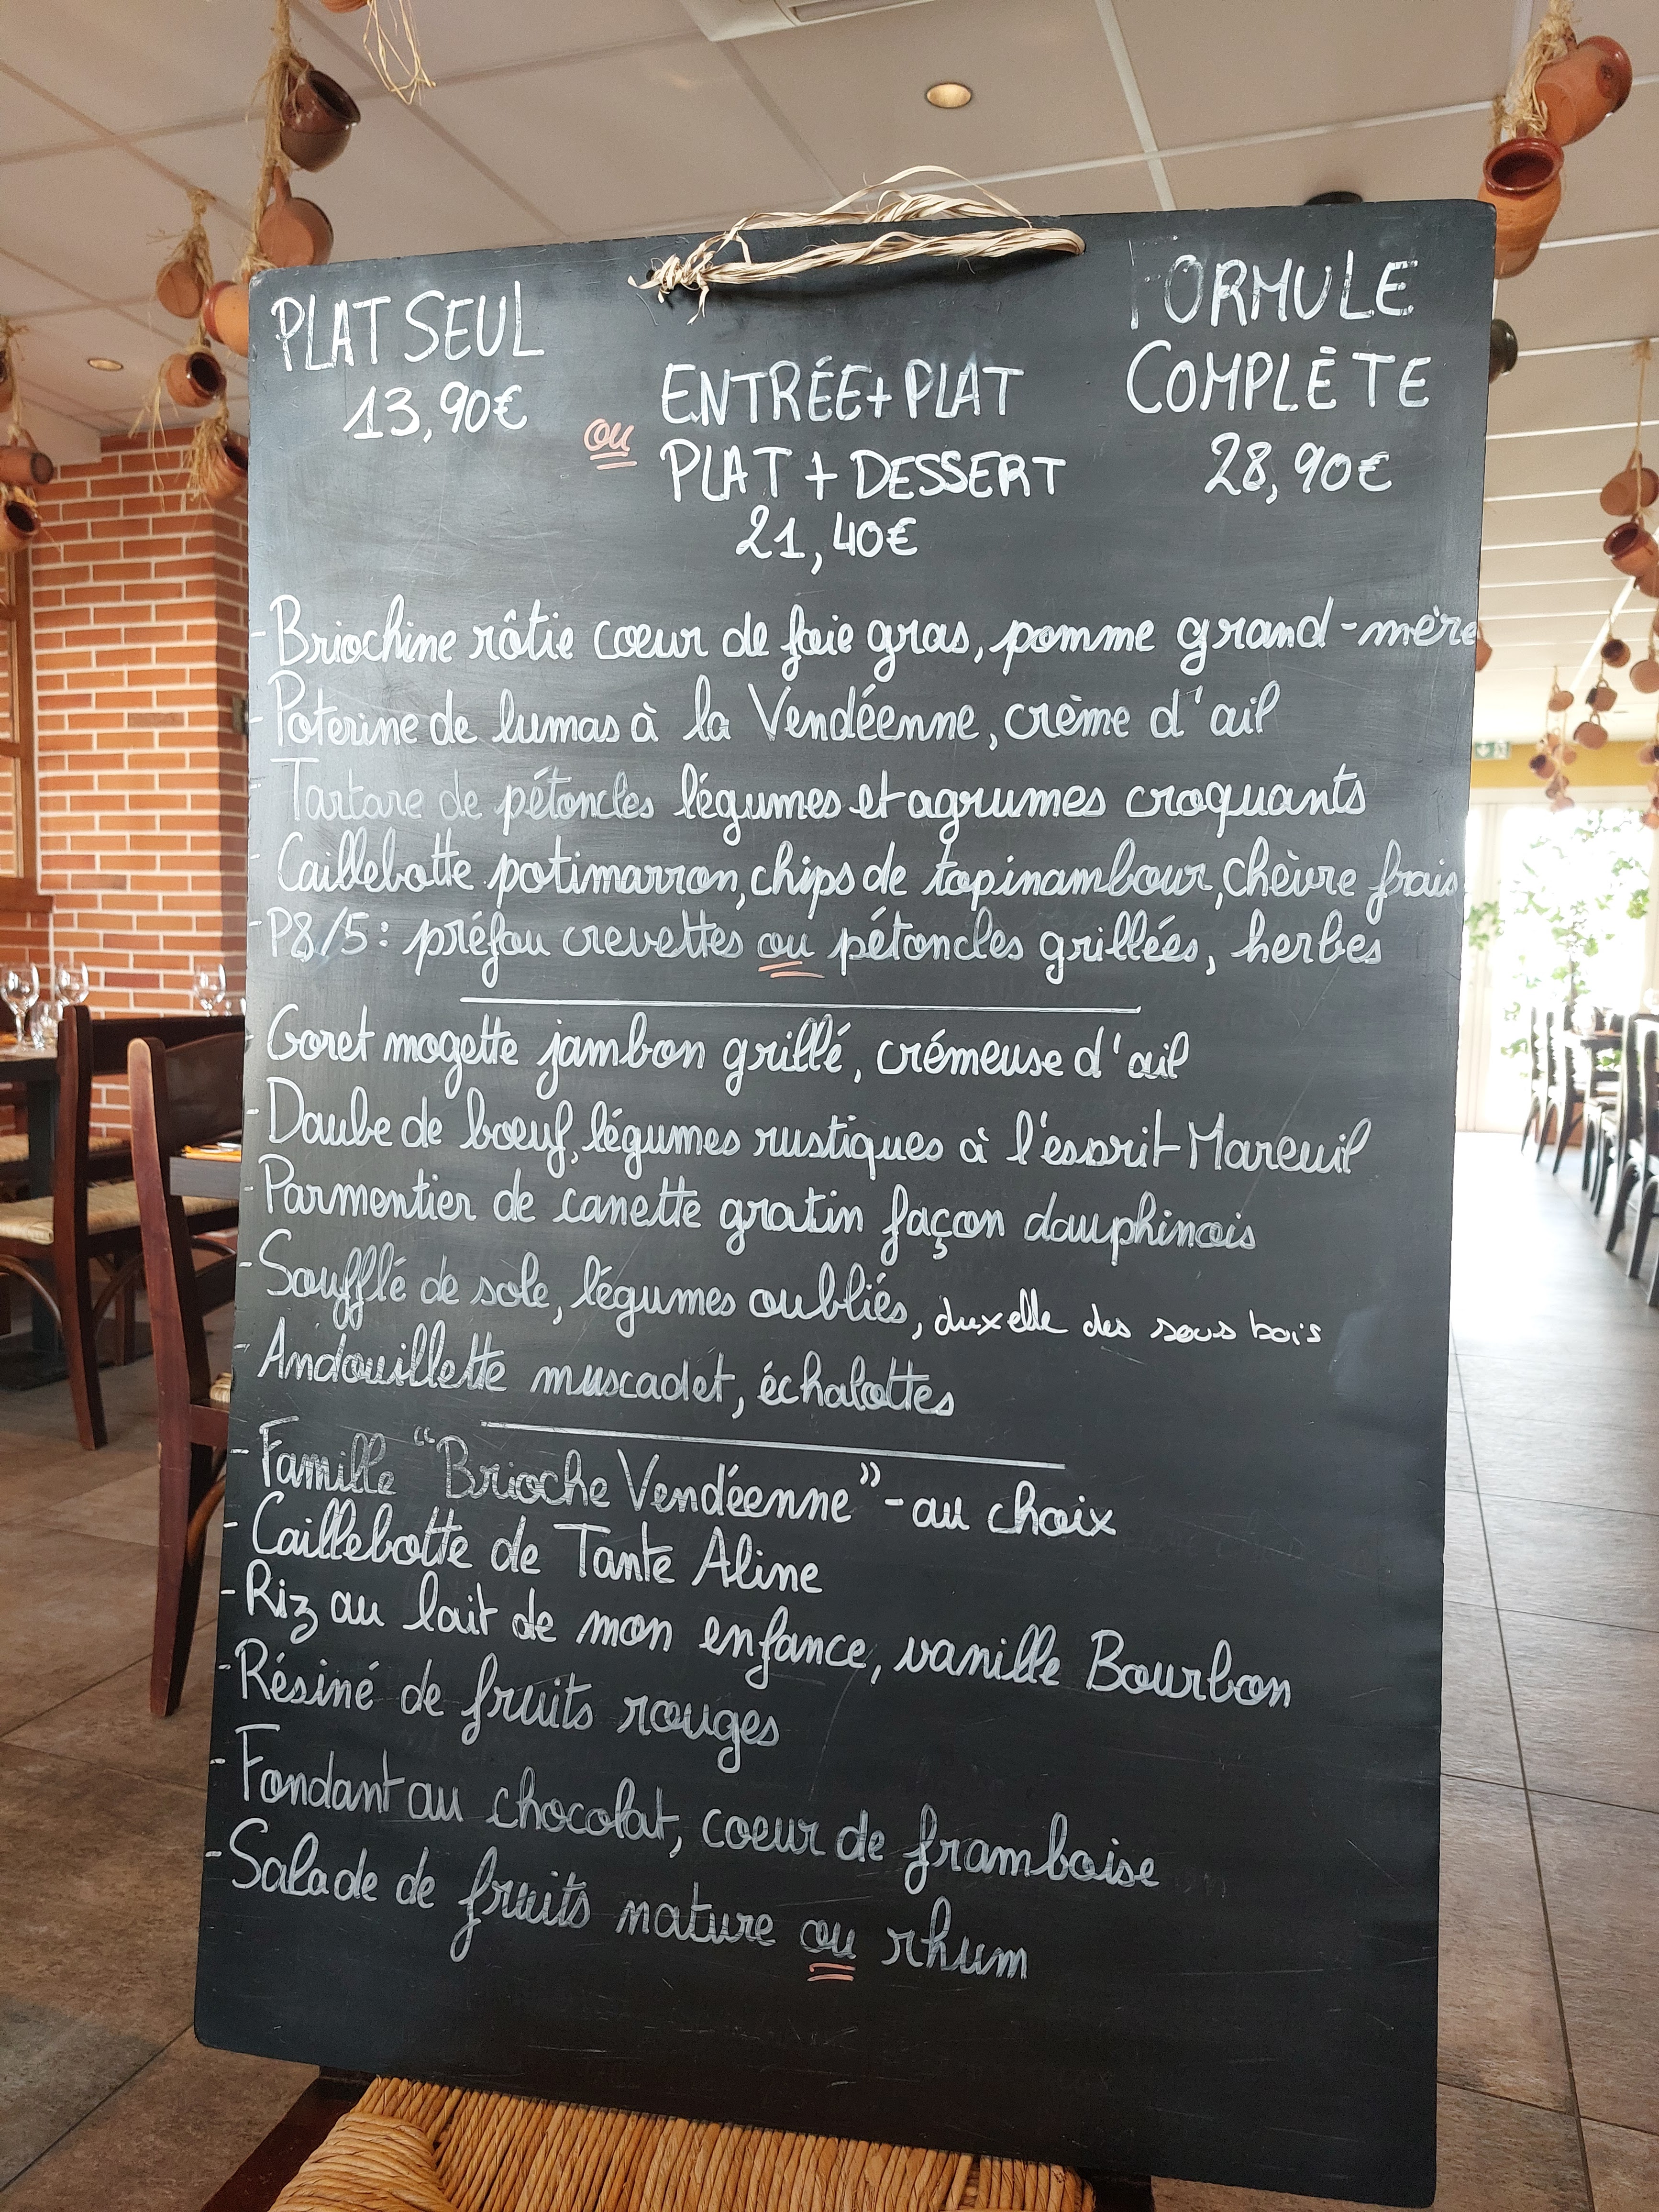 PLAT SEUL
13,90€
ou
ENTRÉE + PLAT
PLAT + DESSERT
21,40€
FORMULE
COMPLÈTE
28,90€
- Briochine rôtie cœur de foie gras, pomme grand-mère
- Poterine de lumas à la Vendéenne, crème d'ail
- Tartare de pétoncles légumes et agrumes croquants
- Caillebotte potimarron, chips de topinambour, chèvre frais
- P8/5 : préfou crevettes ou pétoncles grillées, herbes
- Goret mogette jambon grillé, crémeuse d'ail
- Daube de bœuf, légumes rustiques à l'esprit Mareuil
- Parmentier de canette gratin façon dauphinois
- Soufflé de sole, légumes oubliés, duxelle des sous bois
- Andouillette muscadet, échalottes
- Famille "Brioche Vendéenne" - au choix
- Caillebotte de Tante Aline
- Riz au lait de mon enfance, vanille Bourbon
- Résiné de fruits rouges
- Fondant au chocolat, coeur de framboise
- Salade de fruits nature ou rhum